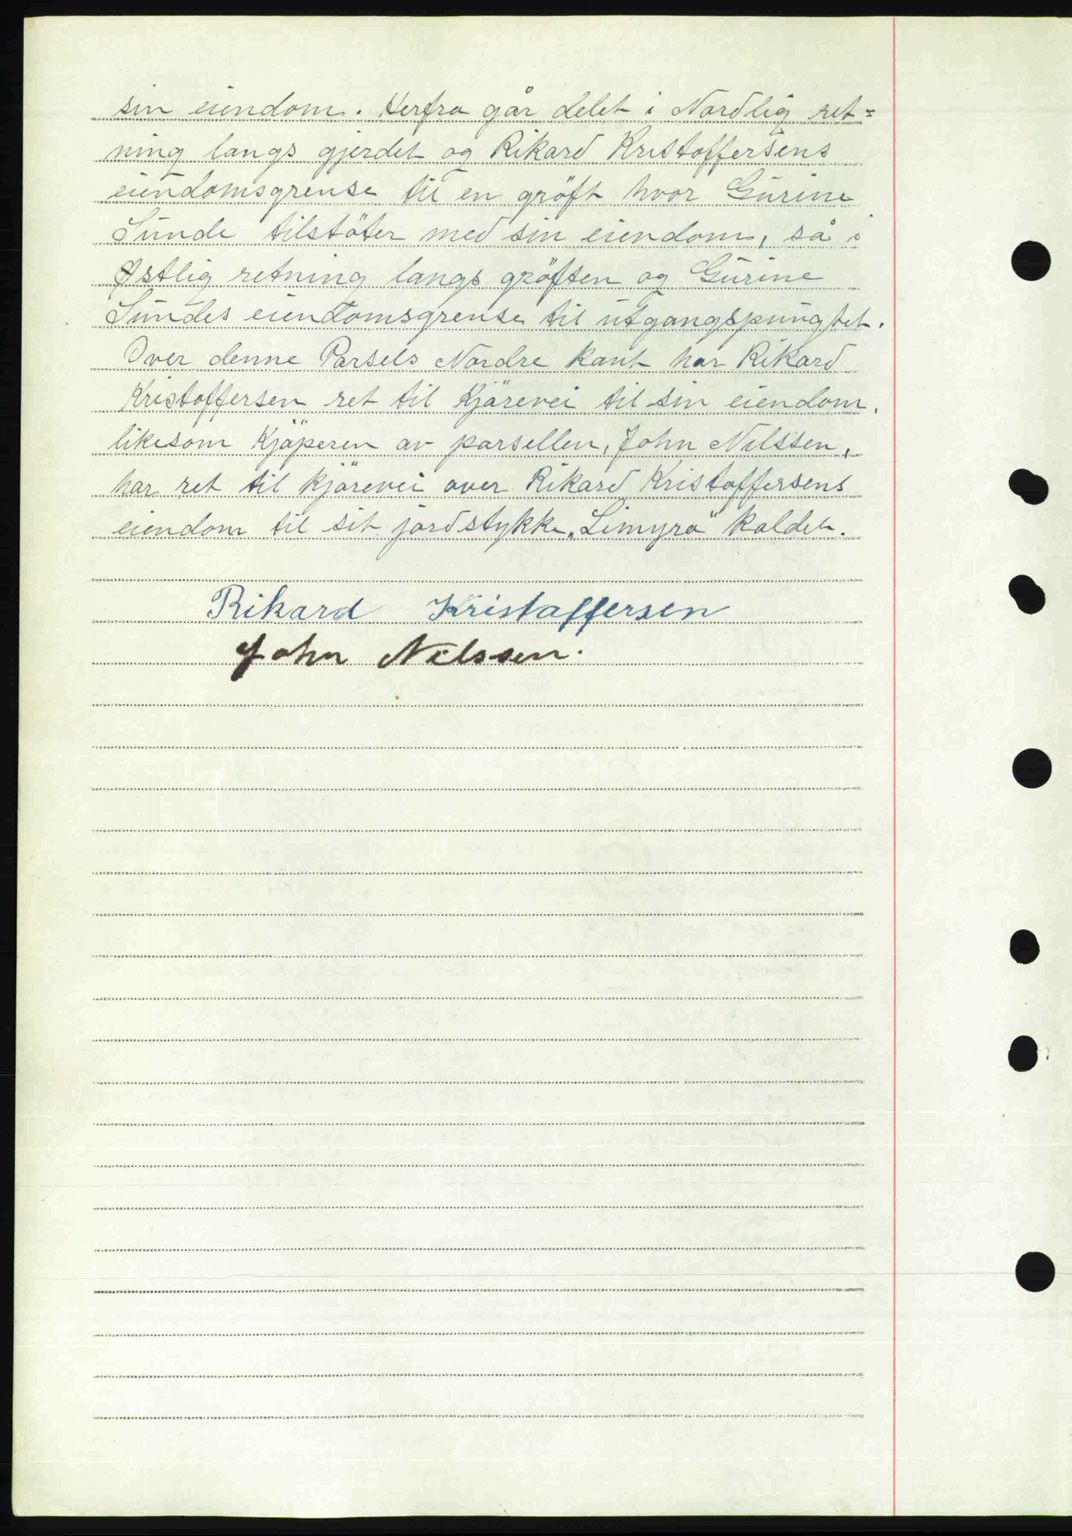 sin eiendom. Herfra går delet i Nordlig ret=
ning langs gjerdet og Rikard Kristoffersens
eiendomsgrense til en gröft hvor Gurine
Sunde tilstöter med sin eiendom, så i
Østlig retning langs gröften og Gurine
Sundes eiendomsgrense til utgangspungtet.
Over denne Parsels Nordre kant har Rikard
Kristoffersen ret til Kjörevei til sin eiendom.
likesom Kjöperen av parsellen, John Nilssen,
har ret til Kjörevei over Rikard Kristoffersens
eiendom til sit jordstykke „Limyra" kaldet.
Rikard Kristoffersen
John Nilssen.